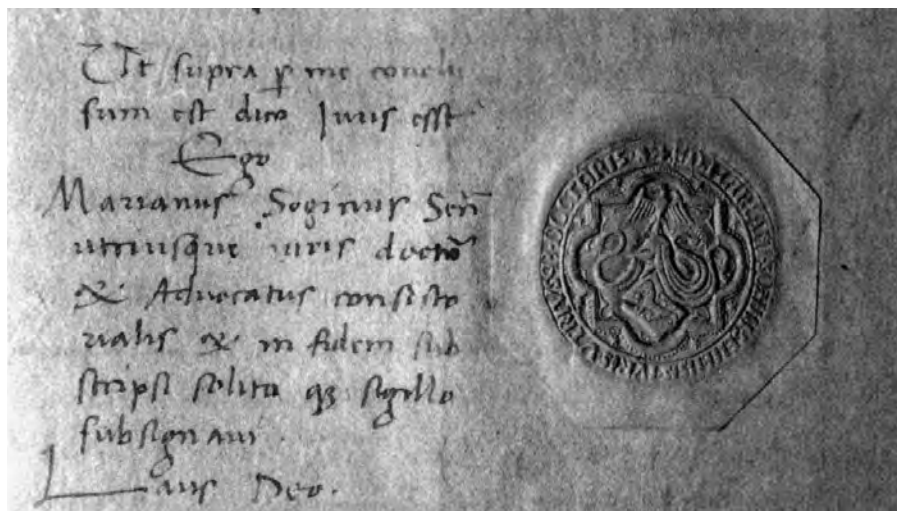 Ut supra p me conclu
sum est dico Juris esse
Ego
Marianus Soginus Sen
utriusque iuris doctor
& Advocatus consisto
rialis & in fidem sub
scripsi solito q3 sigillo
subsignaui
Laus Deo.